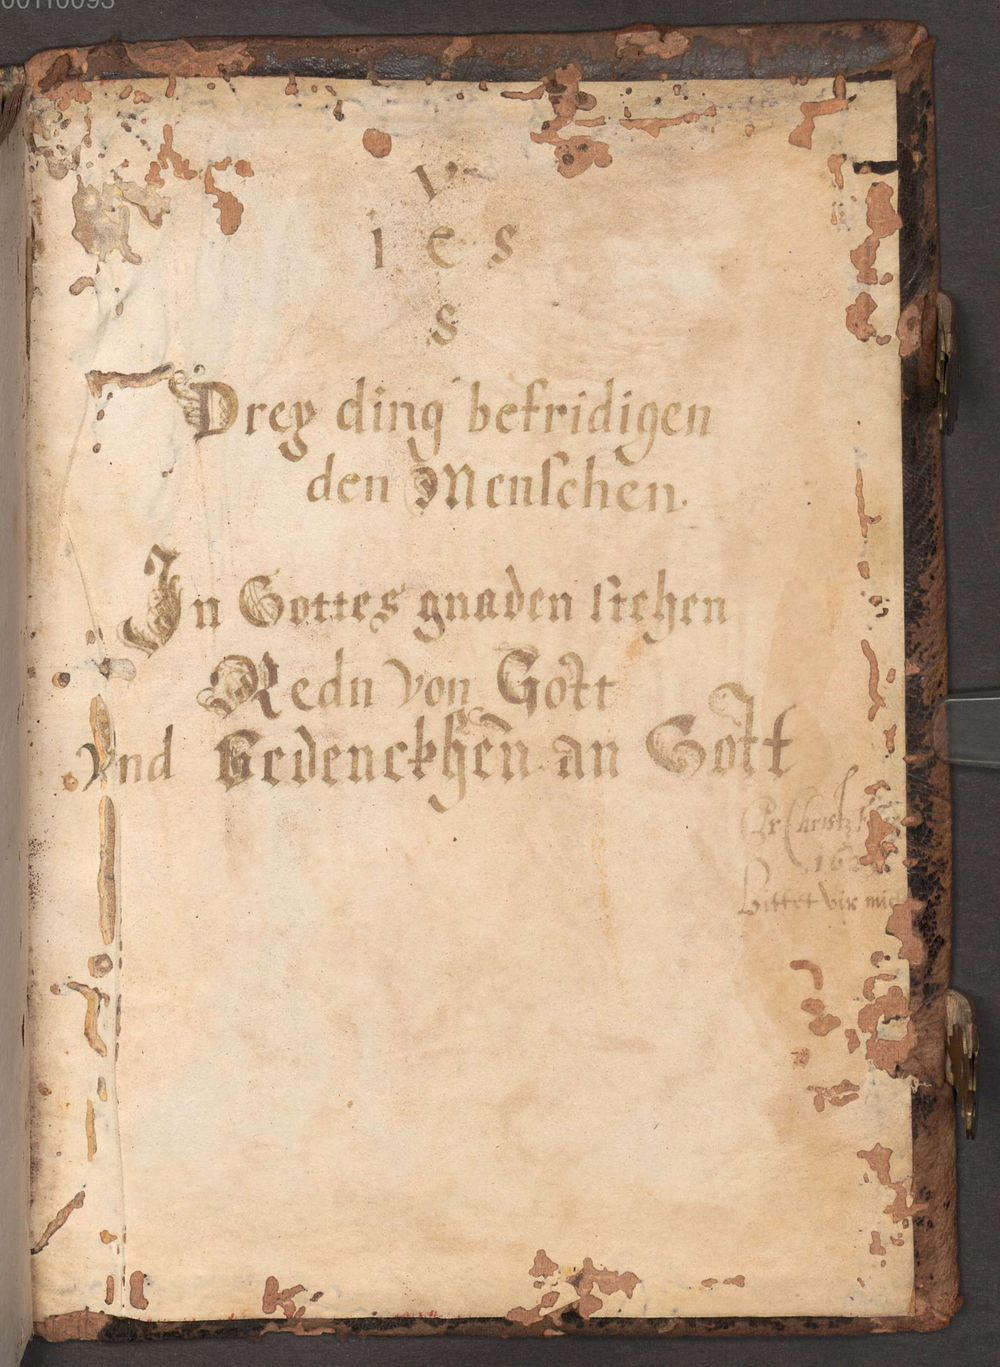 00110093
v
i e s
s
Drey ding befridigen
den Menschen.
In Gottes gnaden stehen
Redn von Gott
Vnd Gedenckhen an Gott
Bittet vir mich